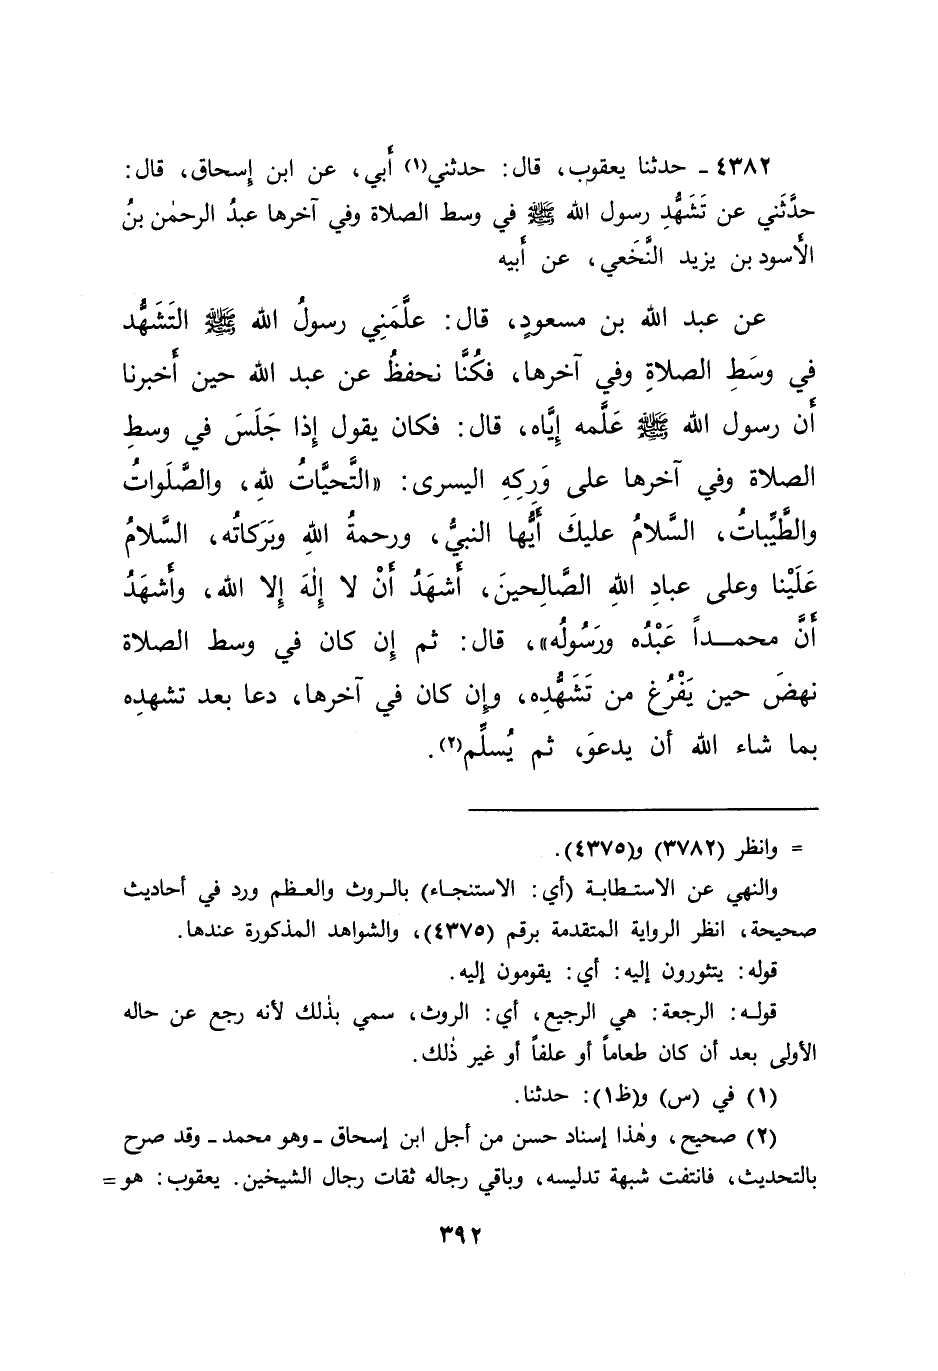 ٤٣٨٢ ـ حدثنا يعقوب، قال: حدثني(١) أَبي، عن ابن إِسحاق، قال:
حدَّثَني عن تَشَهُّدِ رسول الله ﷺ في وسط الصلاة وفي آخرها عبدُ الرحمٰن بنُ
الأَسود بن يزيد النَّخَعي، عن أَبيه
عن عبد الله بن مسعودٍ، قال: علَّمَنِي رسولُ الله ﷺ التَشَهُّد
في وسَطِ الصلاةِ وفي آخرها، فكُنَّا نحفظُ عن عبد الله حين أَخبرنا
أَن رسول الله ﷺ عَلَّمه إِيَّاه، قال: فكان يقول إِذا جَلَسَ في وسطِ
الصلاة وفي آخرها على وَرِكِهِ اليسرى: «التَّحيَّاتُ للهِ، والصَّلَواتُ
والطَّيِّباتُ، السَّلامُ عليكَ أَيُّها النبيُّ، ورحمةُ اللهِ وبَرَكاتُه، السَّلامُ
عَلَيْنا وعلى عبادِ اللهِ الصَّالِحينَ، أَشهَدُ أَنْ لا إِلٰهَ إِلا الله، وأَشهَدُ
أَنَّ محمــداً عَبْدُه ورَسُولُه»، قال: ثم إِن كان في وسط الصلاة
نهضَ حين يَفْرُغ من تَشَهُّدِه، وإِن كان في آخرها، دعا بعد تشهدِه
بما شاء الله أن يدعوَ، ثم يُسلِّم(٢).
= وانظر (٣٧٨٢) و(٤٣٧٥).
والنهي عن الاستطابة (أي: الاستنجاء) بالروث والعظم ورد في أحاديث
صحيحة، انظر الرواية المتقدمة برقم (٤٣٧٥)، والشواهد المذكورة عندها.
قوله: يتثورون إليه: أي: يقومون إليه.
قوله: الرجعة: هي الرجيع، أي: الروث، سمي بذٰلك لأنه رجع عن حاله
الأولى بعد أن كان طعاماً أو علفاً أو غير ذٰلك.
(١) في (س) و(ظ١): حدثنا.
(٢) صحيح، وهٰذا إسناد حسن من أجل ابن إسحاق ـ وهو محمد ـ وقد صرح
بالتحديث، فانتفت شبهة تدليسه، وباقي رجاله ثقات رجال الشيخين. يعقوب: هو =
٣٩٢